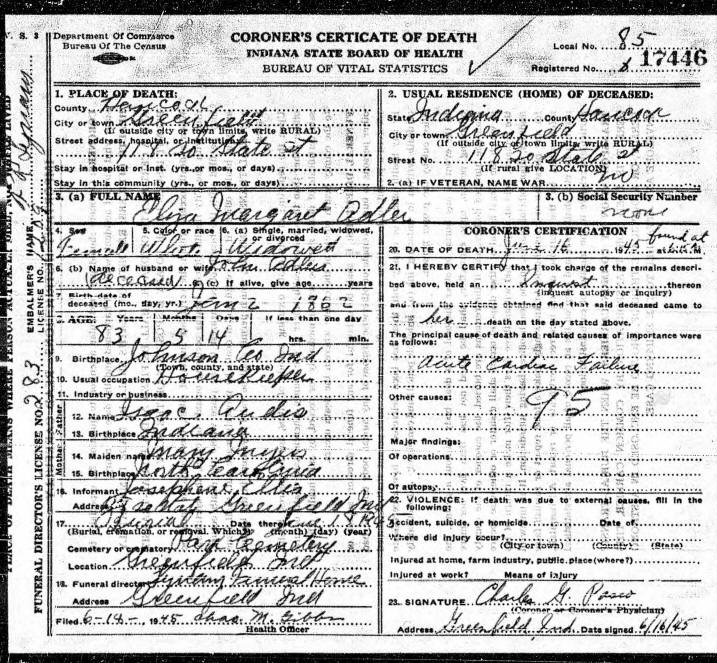 V. S. 3
Department Of Commerce
Bureau Of The Census
CORONER'S CERTICATE OF DEATH
INDIANA STATE BOARD OF HEALTH
BUREAU OF VITAL STATISTICS
Local No. 85
Registered No. 17446
1. PLACE OF DEATH:
County Hancock
City or town Greenfield
(If outside city or town limits, write RURAL)
Street address, hospital, or institution
118 So State St
Stay in hospital or inst. (yrs., or mos., or days)
Stay in this community (yrs., or mos., or days)
2. USUAL RESIDENCE (HOME) OF DECEASED:
State Indiana County Hancock
City or town Greenfield
(If outside city or town limits, write RURAL)
Street No. 118 So State St
(If rural give LOCATION)
2. (a) IF VETERAN, NAME WAR no
3. (a) FULL NAME
Eliza Margaret Adler
3. (b) Social Security Number
none
4. Sex 5. Color or race 6. (a) Single, married, widowed, or divorced
Female White Widowed
6. (b) Name of husband or wife John Adler
deceased 6. (c) If alive, give age years
7. Birth date of
deceased (mo., day, yr.) Jan 2 1862
8. AGE: Years Months Days If less than one day
83 5 14 hrs. min.
9. Birthplace Johnson Co Ind
(Town, county, and state)
10. Usual occupation Housekeeper
11. Industry or business
Father
12. Name Isaac Audis
13. Birthplace Indiana
Mother
14. Maiden name Mary
15. Birthplace North Carolina
16. Informant Josephene
Address Greenfield Ind
17. Burial Date thereof June 18 1945
(Burial, cremation, or removal. Which?) (month) (day) (year)
Cemetery or crematory Park Cemetery
Location Greenfield Ind
18. Funeral director Funeral Home
Address Greenfield Ind
Filed 6-18-, 1945 M. Gibbs
Health Officer
CORONER'S CERTIFICATION
20. DATE OF DEATH June 16 1945 found at
21. I HEREBY CERTIFY that I took charge of the remains described
above, held an Inquest thereon
(inquest autopsy or inquiry)
and from the evidence obtained find that said deceased came to
her death on the day stated above.
The principal cause of death and related causes of importance were
as follows:
Acute Cardiac Failure
Other causes:
95
Major findings:
Of operations
Of autopsy
22. VIOLENCE: If death was due to external causes, fill in the
following:
Accident, suicide, or homicide Date of
Where did injury occur?
(City or town) (County) (State)
Injured at home, farm industry, public place (where?)
Injured at work? Means of injury
23. SIGNATURE Charles G. Pasco
(Coroner or Coroner's Physician)
Address Greenfield Ind. Date signed 6/16/45
EMBALMER'S NAME
LICENSE NO.
FUNERAL DIRECTOR'S LICENSE NO. 283